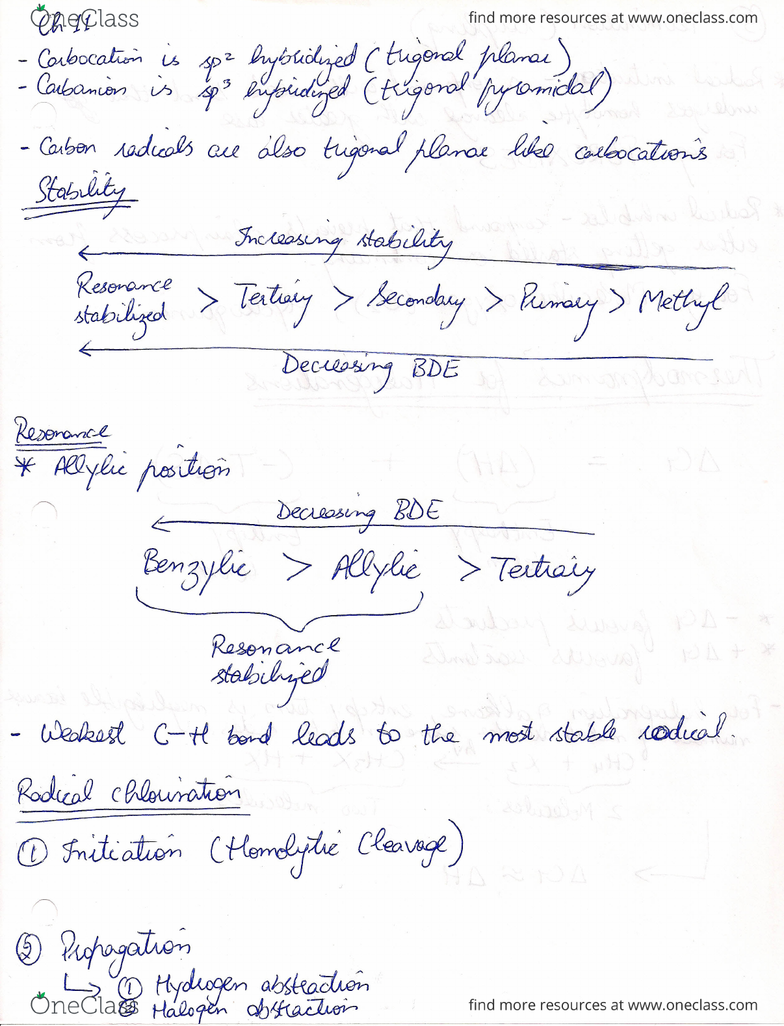 OneClass
find more resources at www.oneclass.com
Ch 11
- Carbocation is sp² hybridized (trigonal planar)
- Carbanion is sp³ hybridized (trigonal pyramidal)
- Carbon radicals are also trigonal planar like carbocations
Stability
Increasing stability
Resonance stabilized > Tertiary > Secondary > Primary > Methyl
Decreasing BDE
Resonance
* Allylic position
Decreasing BDE
Benzylic > Allylic > Tertiary
Resonance
stabilized
- Weakest C-H bond leads to the most stable radical.
Radical chlorination
① Initiation (Homolytic Cleavage)
② Propagation
↳ ① Hydrogen abstraction
② Halogen abstraction
OneClass
find more resources at www.oneclass.com